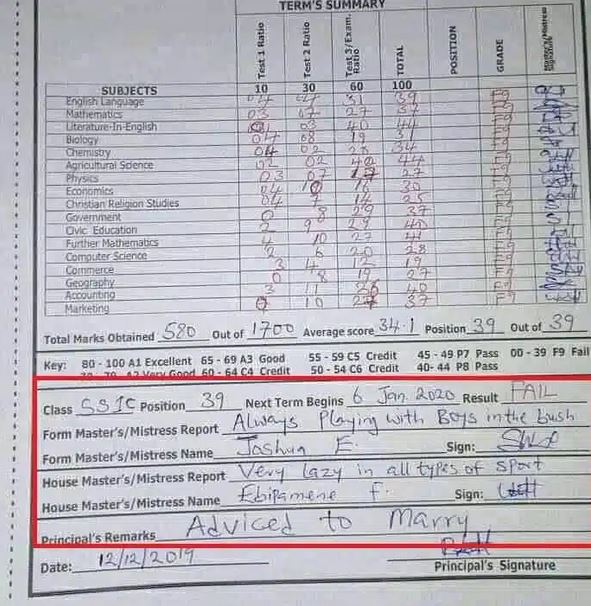 TERM'S SUMMARY
SUBJECTS Test 1 Ratio Test 2 Ratio Test 3/Exam. Ratio TOTAL POSITION GRADE Signature
10 30 60 100
English Language 04 04 31 39 F9
Mathematics 03 07 27 37 F9
Literature-In-English 03 40 44 F9
Biology 04 08 19 F9
Chemistry 04 02 28 34 F9
Agricultural Science 02 02 40 44 F9
Physics 03 07 17 27 F9
Economics 04 10 16 30 F9
Christian Religion Studies 04 7 14 25 F9
Government 0 8 29 37 F9
Civic Education 2 9 29 40 F9
Further Mathematics 4 10 27 41 F9
Computer Science 2 6 20 28 F9
Commerce 3 4 12 19 F9
Geography 0 8 19 27 F9
Accounting 3 11 26 40 F9
Marketing 0 10 27 37 F9
Total Marks Obtained 580 Out of 1700 Average score 34.1 Position 39 Out of 39
Key: 80 - 100 A1 Excellent 65 - 69 A3 Good 55 - 59 C5 Credit 45 - 49 P7 Pass 00 - 39 F9 Fail
A2 Very Good 60 - 64 C4 Credit 50 - 54 C6 Credit 40- 44 P8 Pass
Class SS1C Position 39 Next Term Begins 6 Jan. 2020 Result FAIL
Form Master's/Mistress Report Always Playing with Boys in the bush
Form Master's/Mistress Name Joshua E. Sign:
House Master's/Mistress Report Very lazy in all types of sport
House Master's/Mistress Name Ebipamene f. Sign:
Principal's Remarks Adviced to Marry
Date: 12/12/2019 Principal's Signature